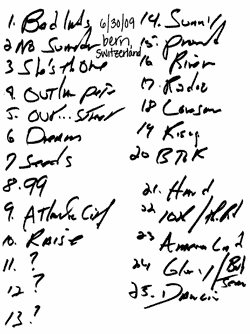 1. Badlands
6/30/09
bern,
Switzerland
2 No Surrender
3 She's the One
4 Outlaw Pete
5. Out... Street
6 Dream
7 Seeds
8. 99
9. Atlantic City
10. Raise
11. ?
12 ?
13 ?
14. Sunny
15. Promised
16 River
17. Radio
18 Lonesome
19 Rising
20 BTR
21. Hard
22 10th
23 American Land
24 Glory /
25. Dancin